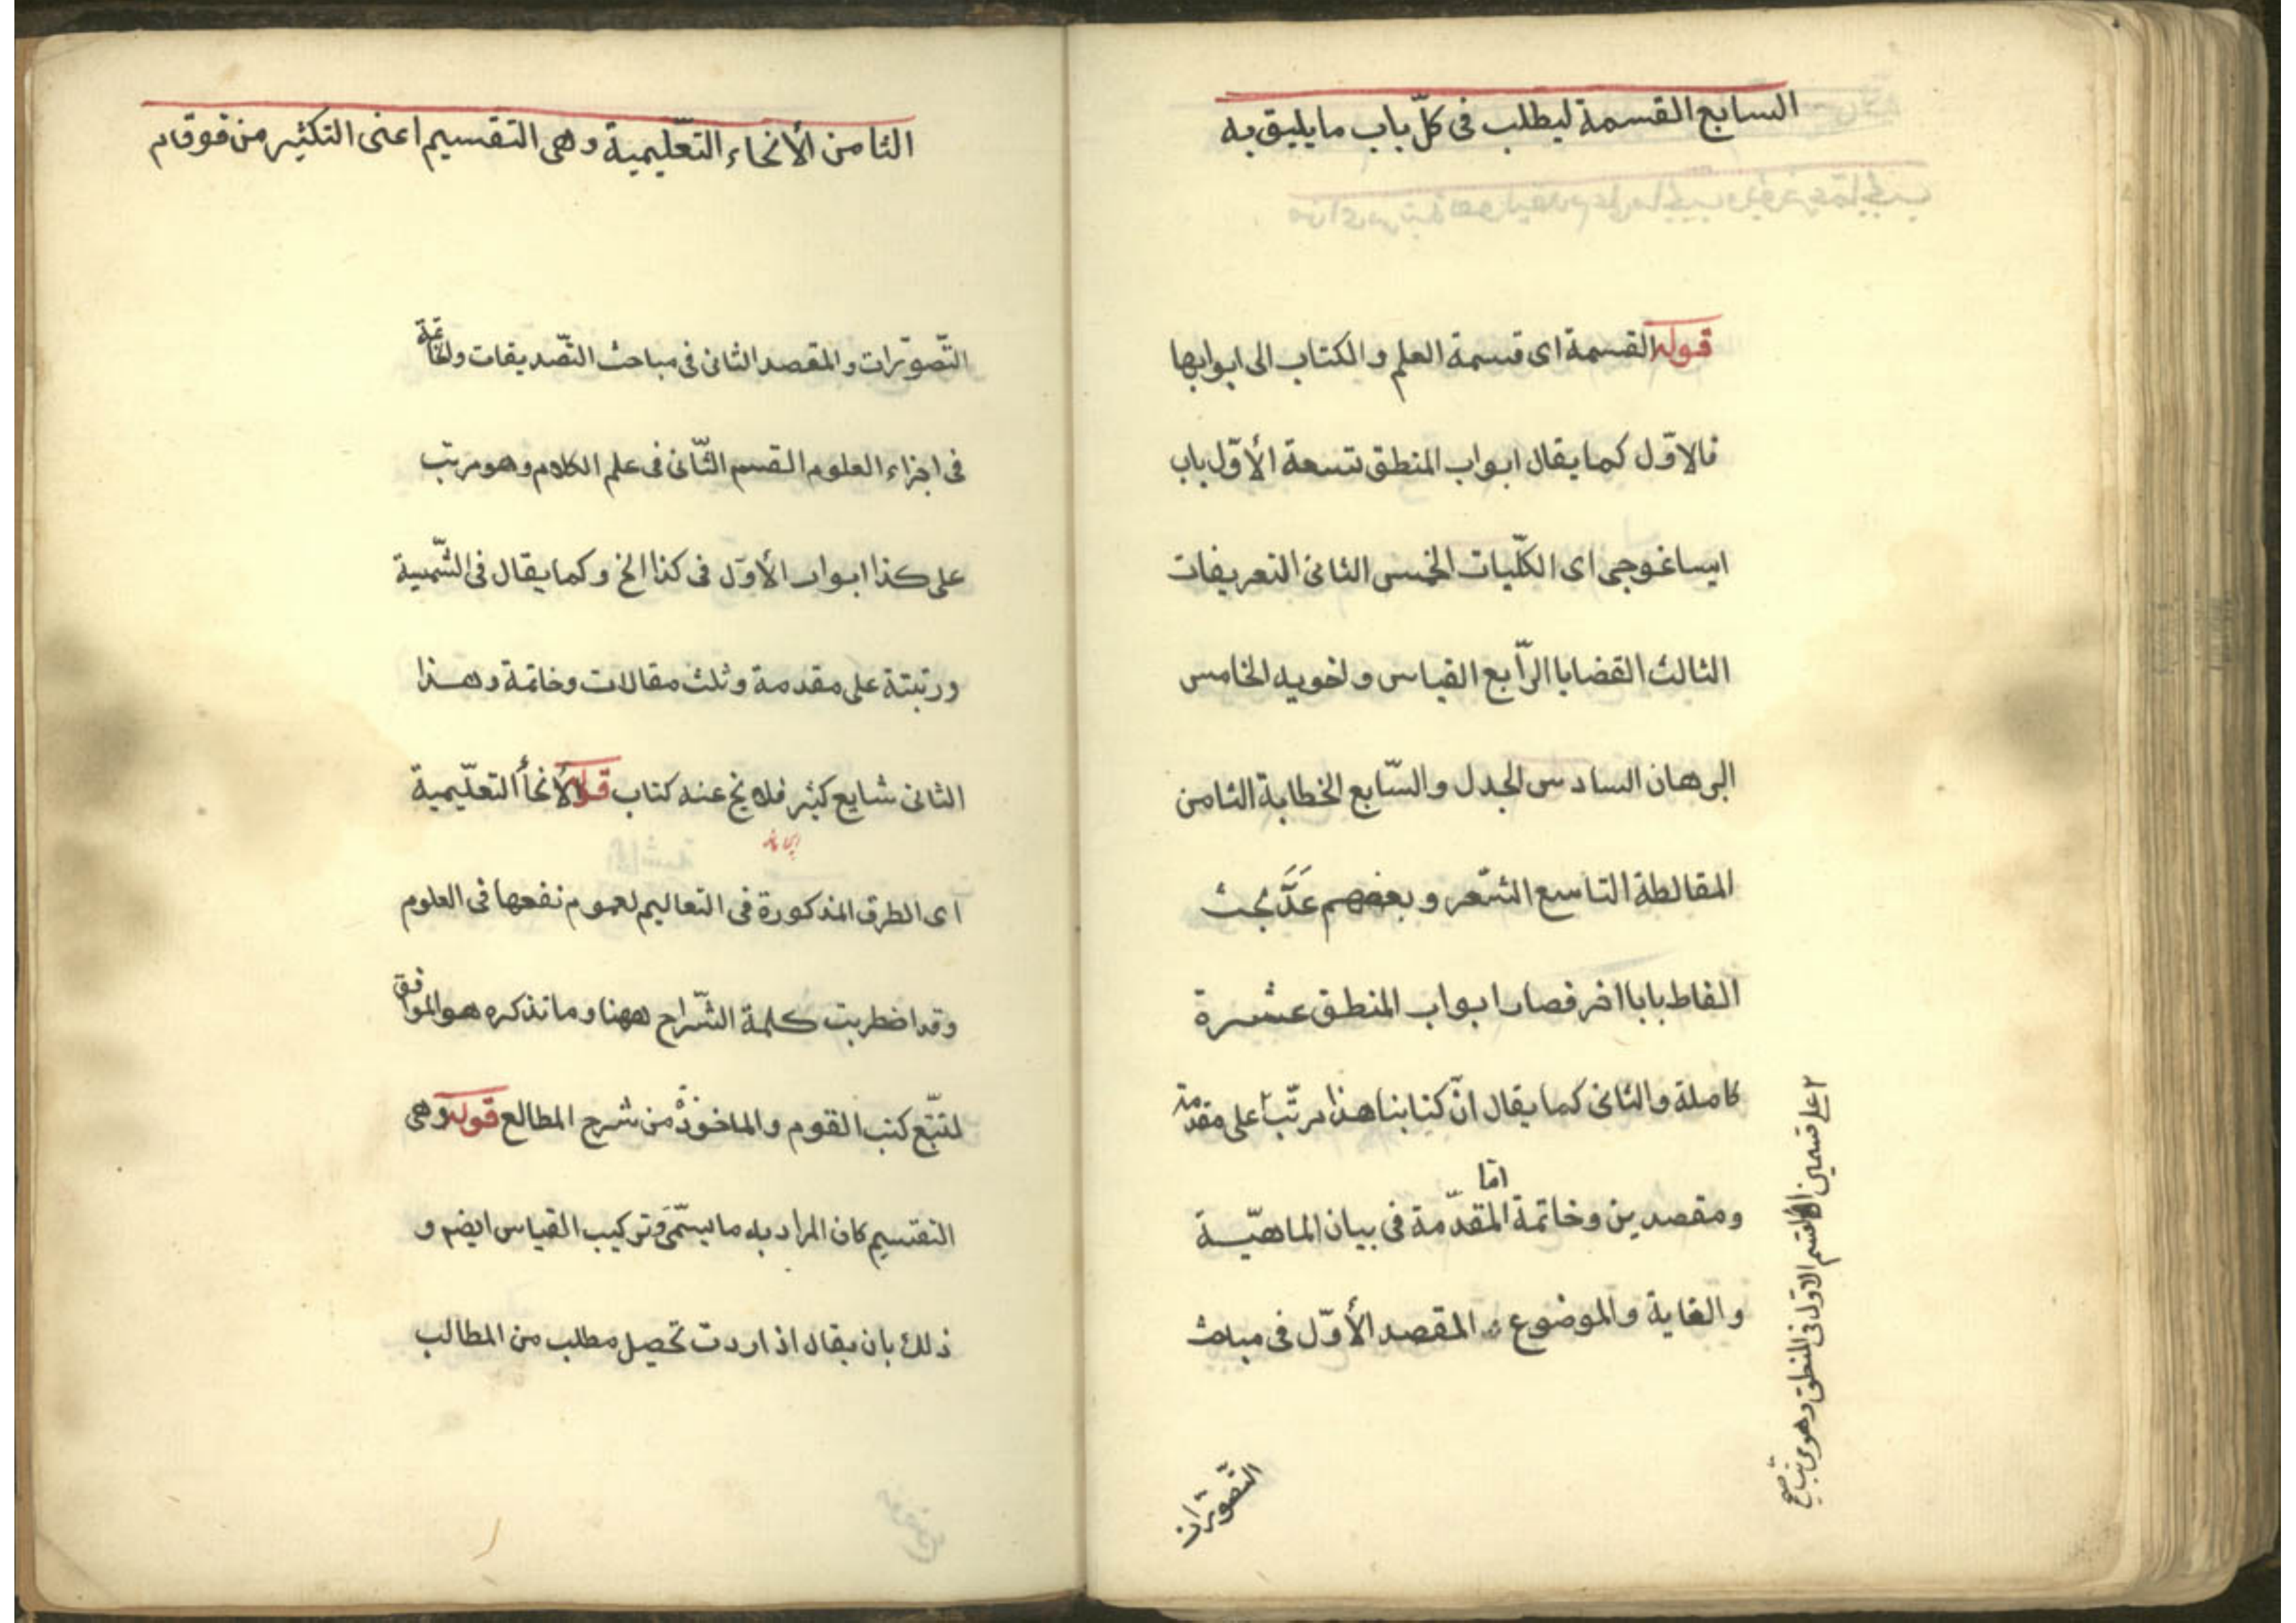 السابع القسمة ليطلب فى كلّ باب ما يليق به
قوله القسمة اى قسمة العلم و الكتاب الى ابوابها
فالاوّل كما يقال ابواب المنطق تسعة الأوّل باب
ايساغوجى اى الكلّيات الخمس الثانى التعريفات
الثالث القضايا الرّابع القياس و اخويه الخامس
البرهان السادس الجدل و السّابع الخطابة الثامن
المغالطة التاسع الشّعر و بعضهم عَدَّ بحث
الفاظ بابا اخر فصار ابواب المنطق عشرة
كاملة و الثانى كما يقال انّ كتابنا هذا مرتّب ٢ على مقدّمة
ومقصدين و خاتمة امّا المقدّمة فى بيان الماهيّة
و الغاية و الموضوع المقصد الأوّل فى مباحث
٢ على قسمين القسم الاوّل فى المنطق و هو مرتب صح
التّصوّرات
الثامن الأنحاء التعّليمية و هى التقسيم اعنى التكثير من فوق ام
التّصوّرات و المقصد الثانى فى مباحث التّصديقات و الخاتمة
فى اجزاء العلوم القسم الثّانى فى علم الكلام و هو مرتب
على كذا ابواب الأوّل فى كذا الخ و كما يقال فى الشّمسية
و رتبتة على مقدمة و ثلث مقالات و خاتمة و هذا
الثانى شايع كثير فلا يخ عنه كتاب قوله الأنحأ التعلّيمية
اى الطرق المذكورة فى التعاليم لعموم نفعها فى العلوم
و قد اضطربت كلمة الشّراح ههنا و ما نذكره هو الموافق
لتتبّع كتب القوم و الماخوذ من شرح المطالع قوله و هى
التقسيم كان المراد به ما يسّمى تركيب القياس ايضم و
ذلك بان يقال اذ اردت تحصيل مطلب من المطالب